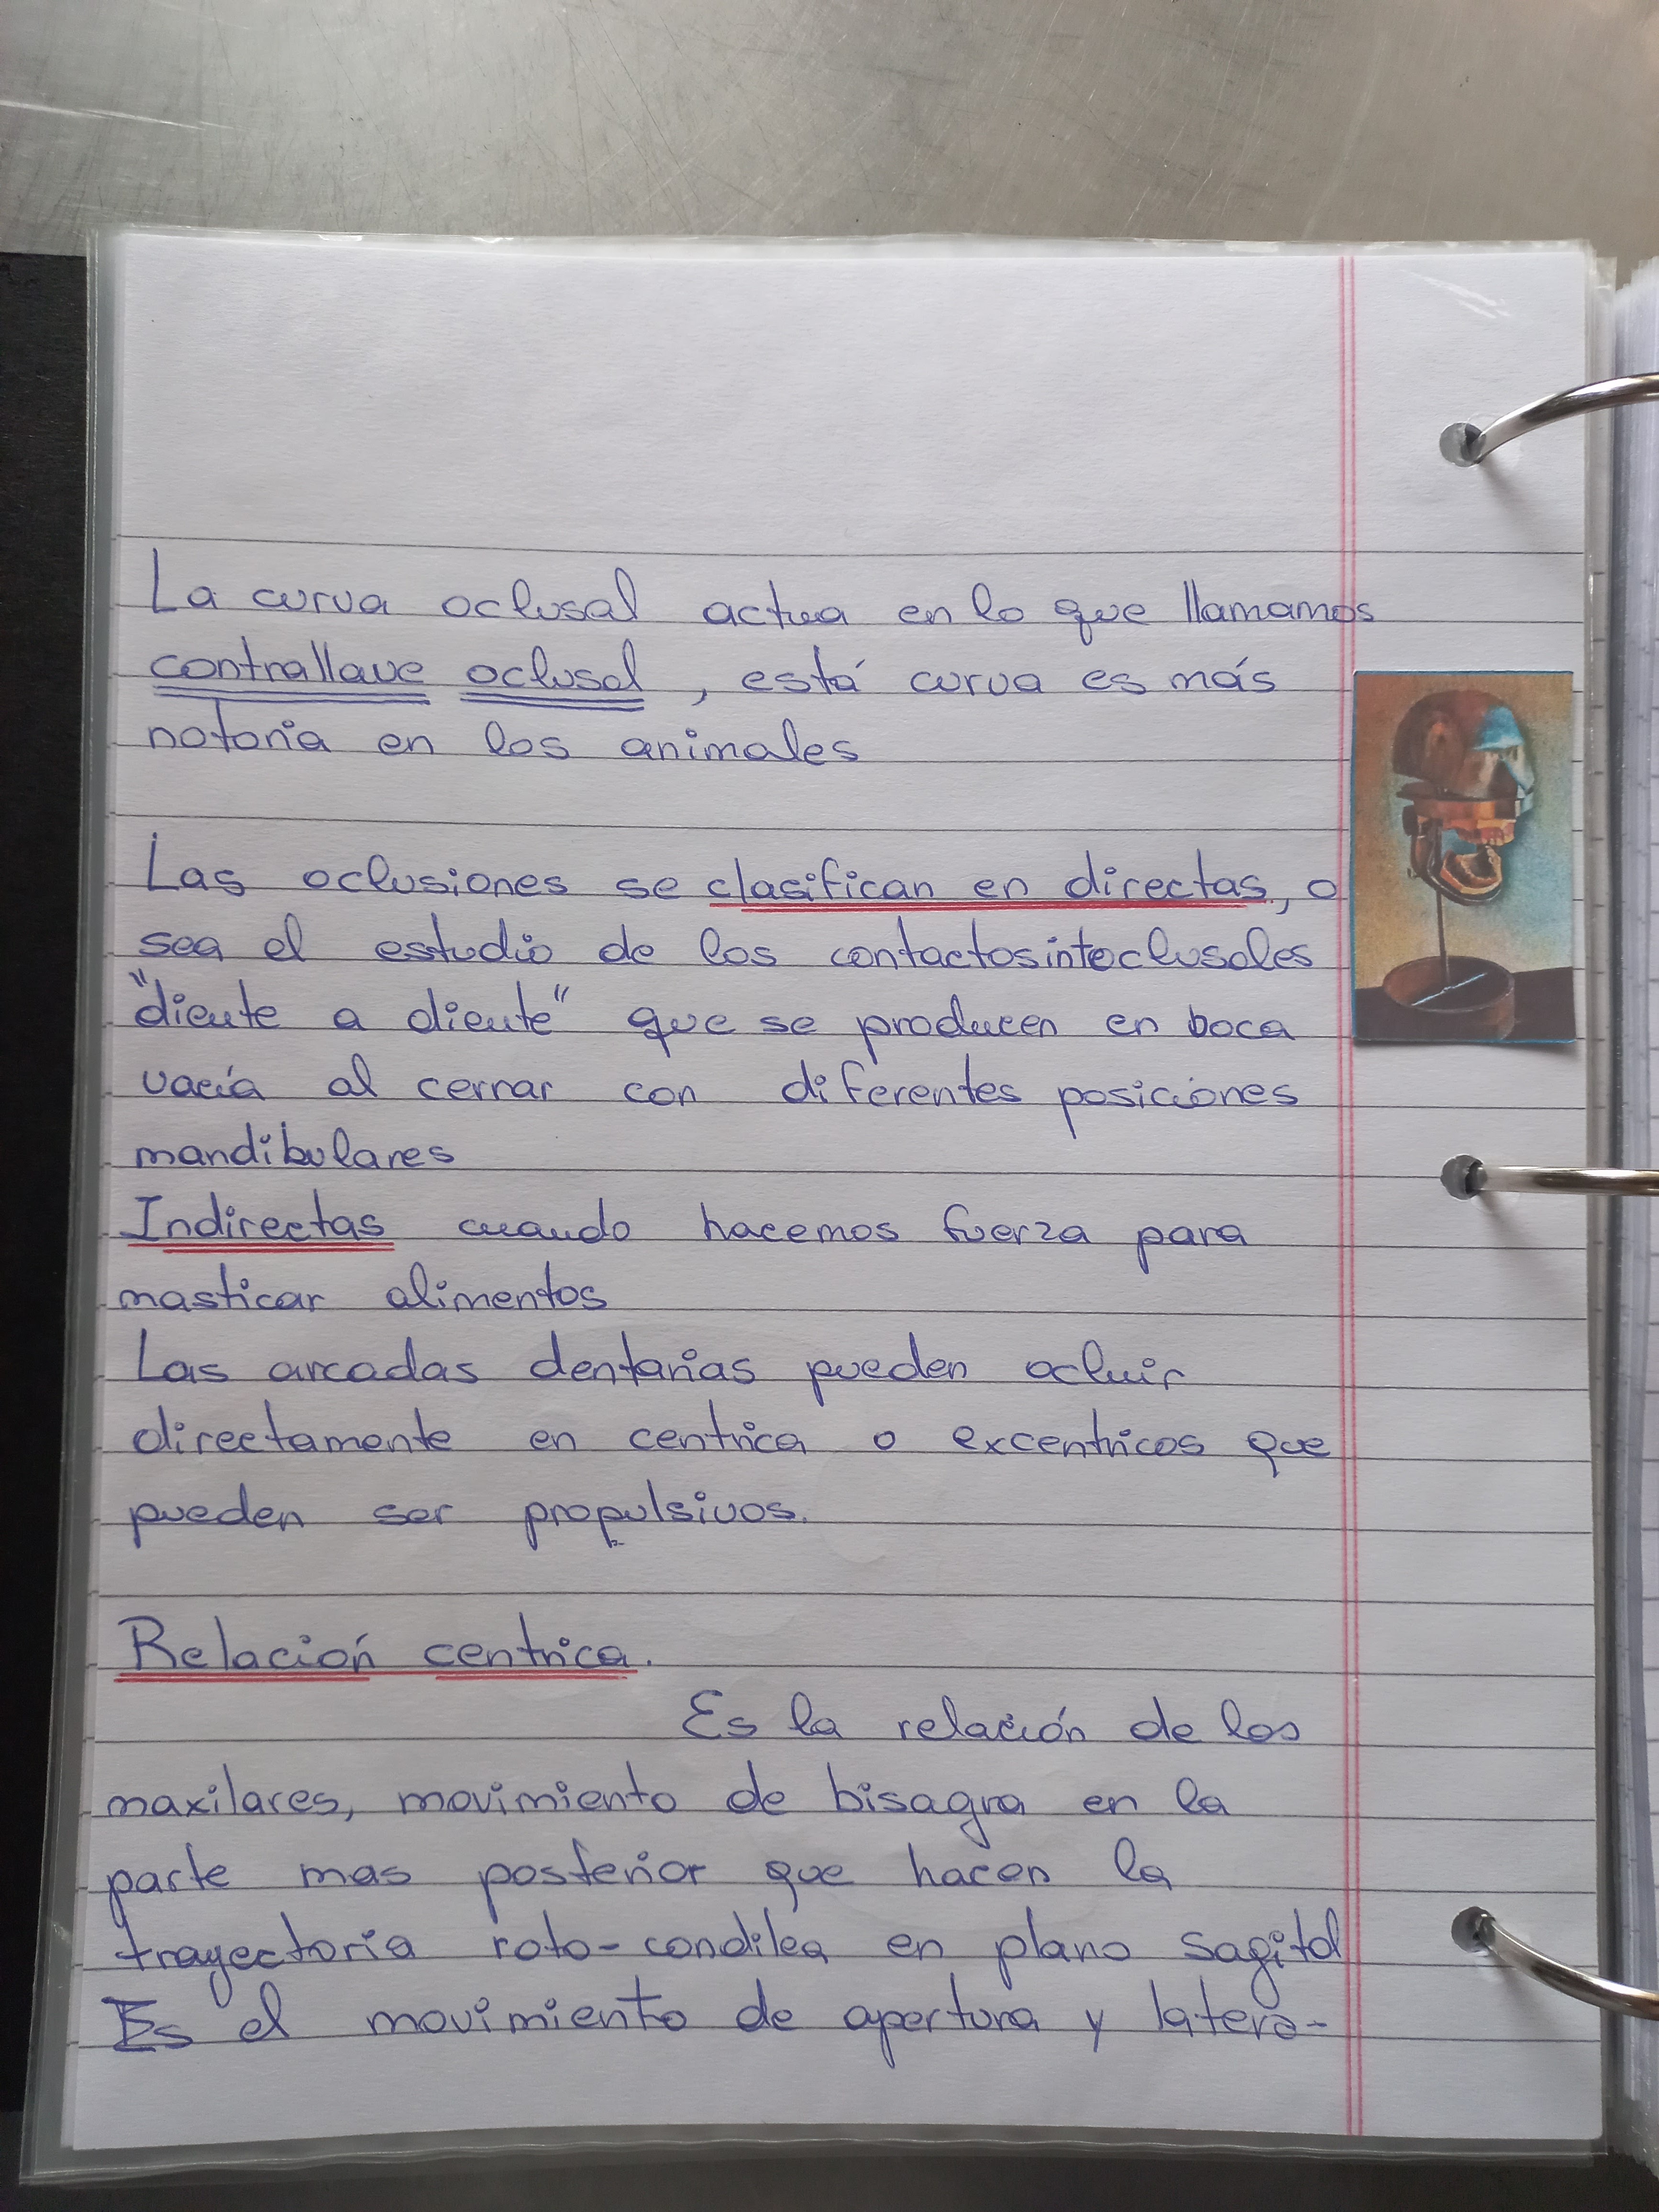 La curva oclusal actua en lo que llamamos
contrallave oclusal, está curva es más
notoria en los animales
Las oclusiones se clasifican en directas, o
sea el estudio de los contactos inteclusoles
"diente a diente" que se producen en boca
vacía al cerrar con diferentes posiciones
mandibulares
Indirectas cuando hacemos fuerza para
masticar alimentos
Las arcadas dentarias pueden ocluir
directamente en centrica o excentricos que
pueden ser propulsivos.
Relación centrica.
Es la relación de los
maxilares, movimiento de bisagra en la
parte mas posterior que hacen la
trayectoria roto-condilea en plano sagital
Es el movimiento de apertura y latero-